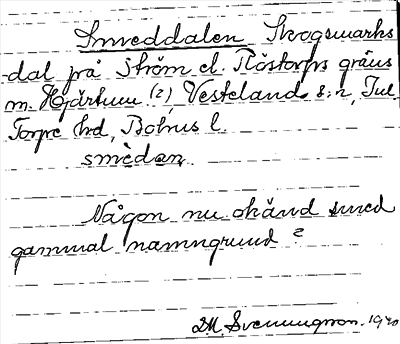 Smeddalen Skogsmarks
dal på Ström el. Röstorps gräns
m. Hjärtum (2), Västerland s:n, Inl.
Torpe hd, Bohus l.
smèdan
Någon nu okänd smed
gammal namngrund?
M. Svenungsson. 1940